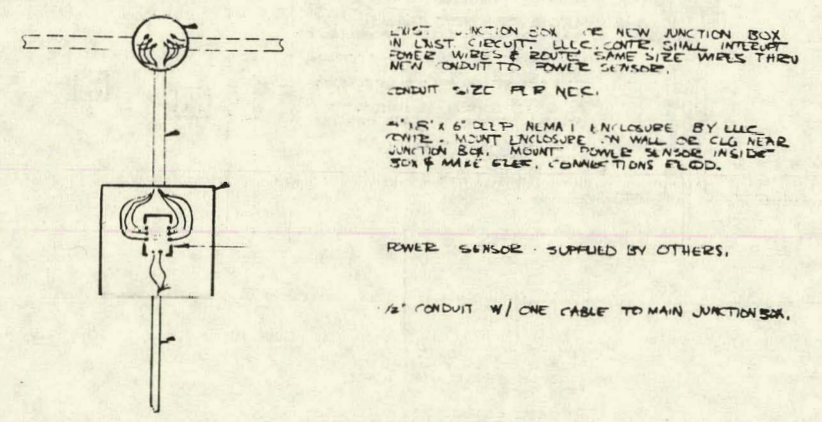 EXIST. JUNCTION BOX OR NEW JUNCTION BOX
IN EXIST. CIRCUIT. ELEC. CONTR. SHALL INTERUPT
POWER WIRES & ROUTE SAME SIZE WIRES THRU
NEW CONDUIT TO POWER SENSOR.
CONDUIT SIZE PER NEC.
6" DEEP NEMA 1 ENCLOSURE BY ELEC
CONTR. MOUNT ENCLOSURE ON WALL OR CLG NEAR
JUNCTION BOX. MOUNT POWER SENSOR INSIDE
BOX & MAKE ELEC. CONNECTIONS
POWER SENSOR SUPPLIED BY OTHERS.
1/2" CONDUIT W/ ONE CABLE TO MAIN JUNCTION BOX.